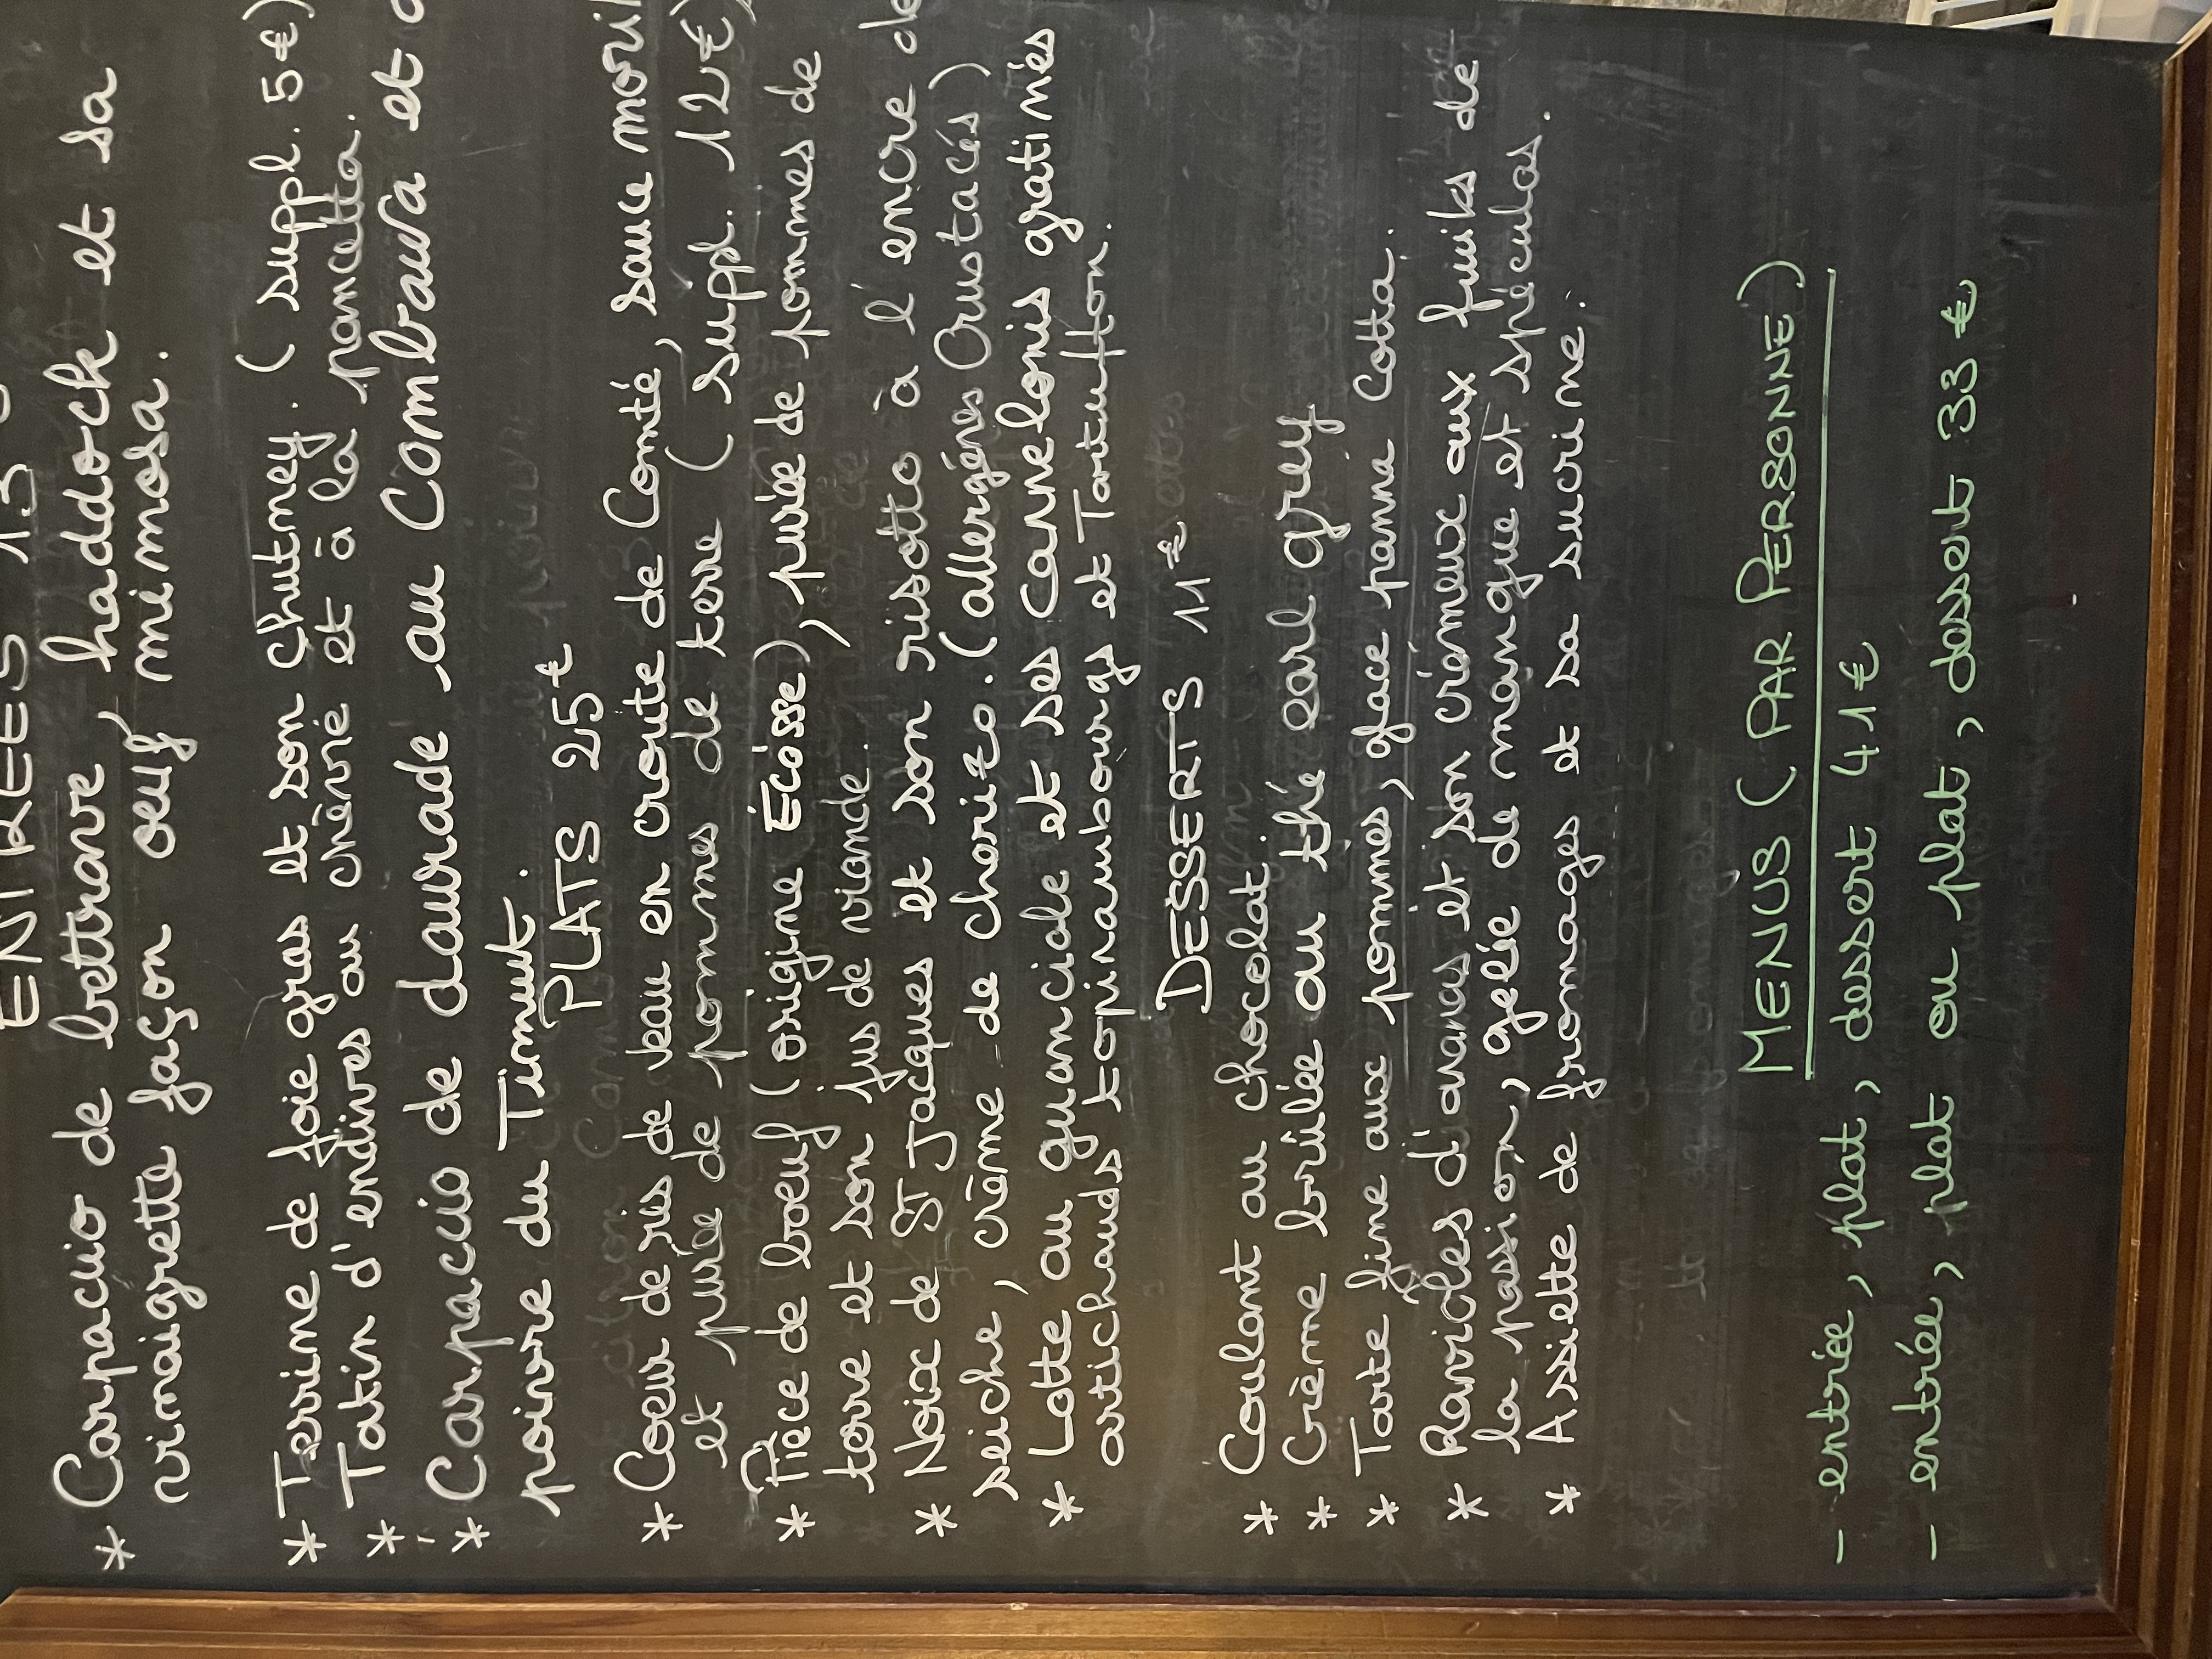 ENTREES 13
* Carpaccio de bettrave, haddock et sa
vinaigrette façon oeuf mimosa.
* Terrine de foie gras et son Chutney. (suppl. 5€)
* Tatin d'endives au chèvre et à la pancetta.
* Carpaccio de daurade au Combava et
poivre du Timut.
PLATS 25€
* Coeur de ris de veau en croute de Comté, sauce
et purée de pommes de terre (suppl. 12€)
* Pièce de boeuf (origine Ecosse), purée de pommes de
terre et son jus de viande.
* Noix de ST Jacques et son risotto à l encre de
seiche, crème de chorizo. (allergénes Crustacés)
* Lotte au guanciale et ses Cannelonis gratinés
artichauds topinambourgs et Tartuffon.
DESSERTS 11€
* Coulant au chocolat.
* Crème brûlée au thé earl grey
* Tarte fine aux pommes, glace panna Cotta.
* Ravioles d'ananas et son crémeux aux fruits de
la passion, gelée de mangue et spéculos.
* Assiette de fromages et sa sucrine.
MENUS (PAR PERSONNE)
- entrée, plat, dessert 41€
- entrée, plat ou plat, dessert 33€